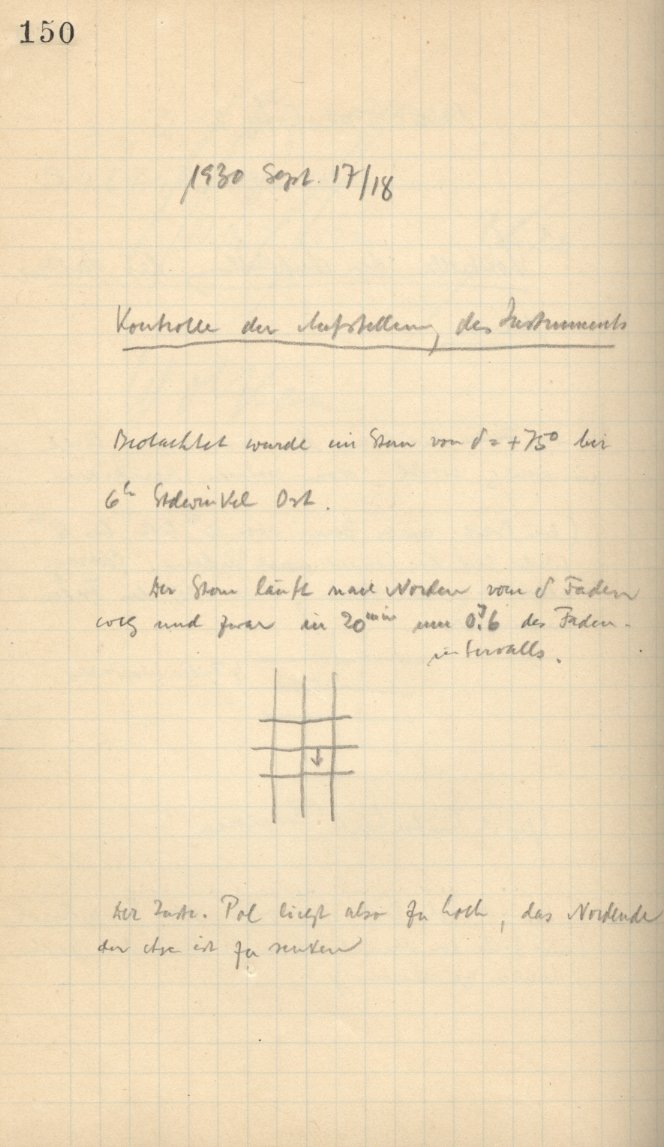 150
1930 Sept. 17/18
Kontrolle der Aufstellung des Instruments
Beobachtet wurde ein Stern von δ = +75° bei
6h Stdwinkel Ost.
Der Stern läuft nach Norden vom δ Faden
weg und zwar in 20min um 0.6 des Faden-
intervalls.
Der Instr. Pol liegt also zu hoch, das Nordende
der Axe ist zu senken